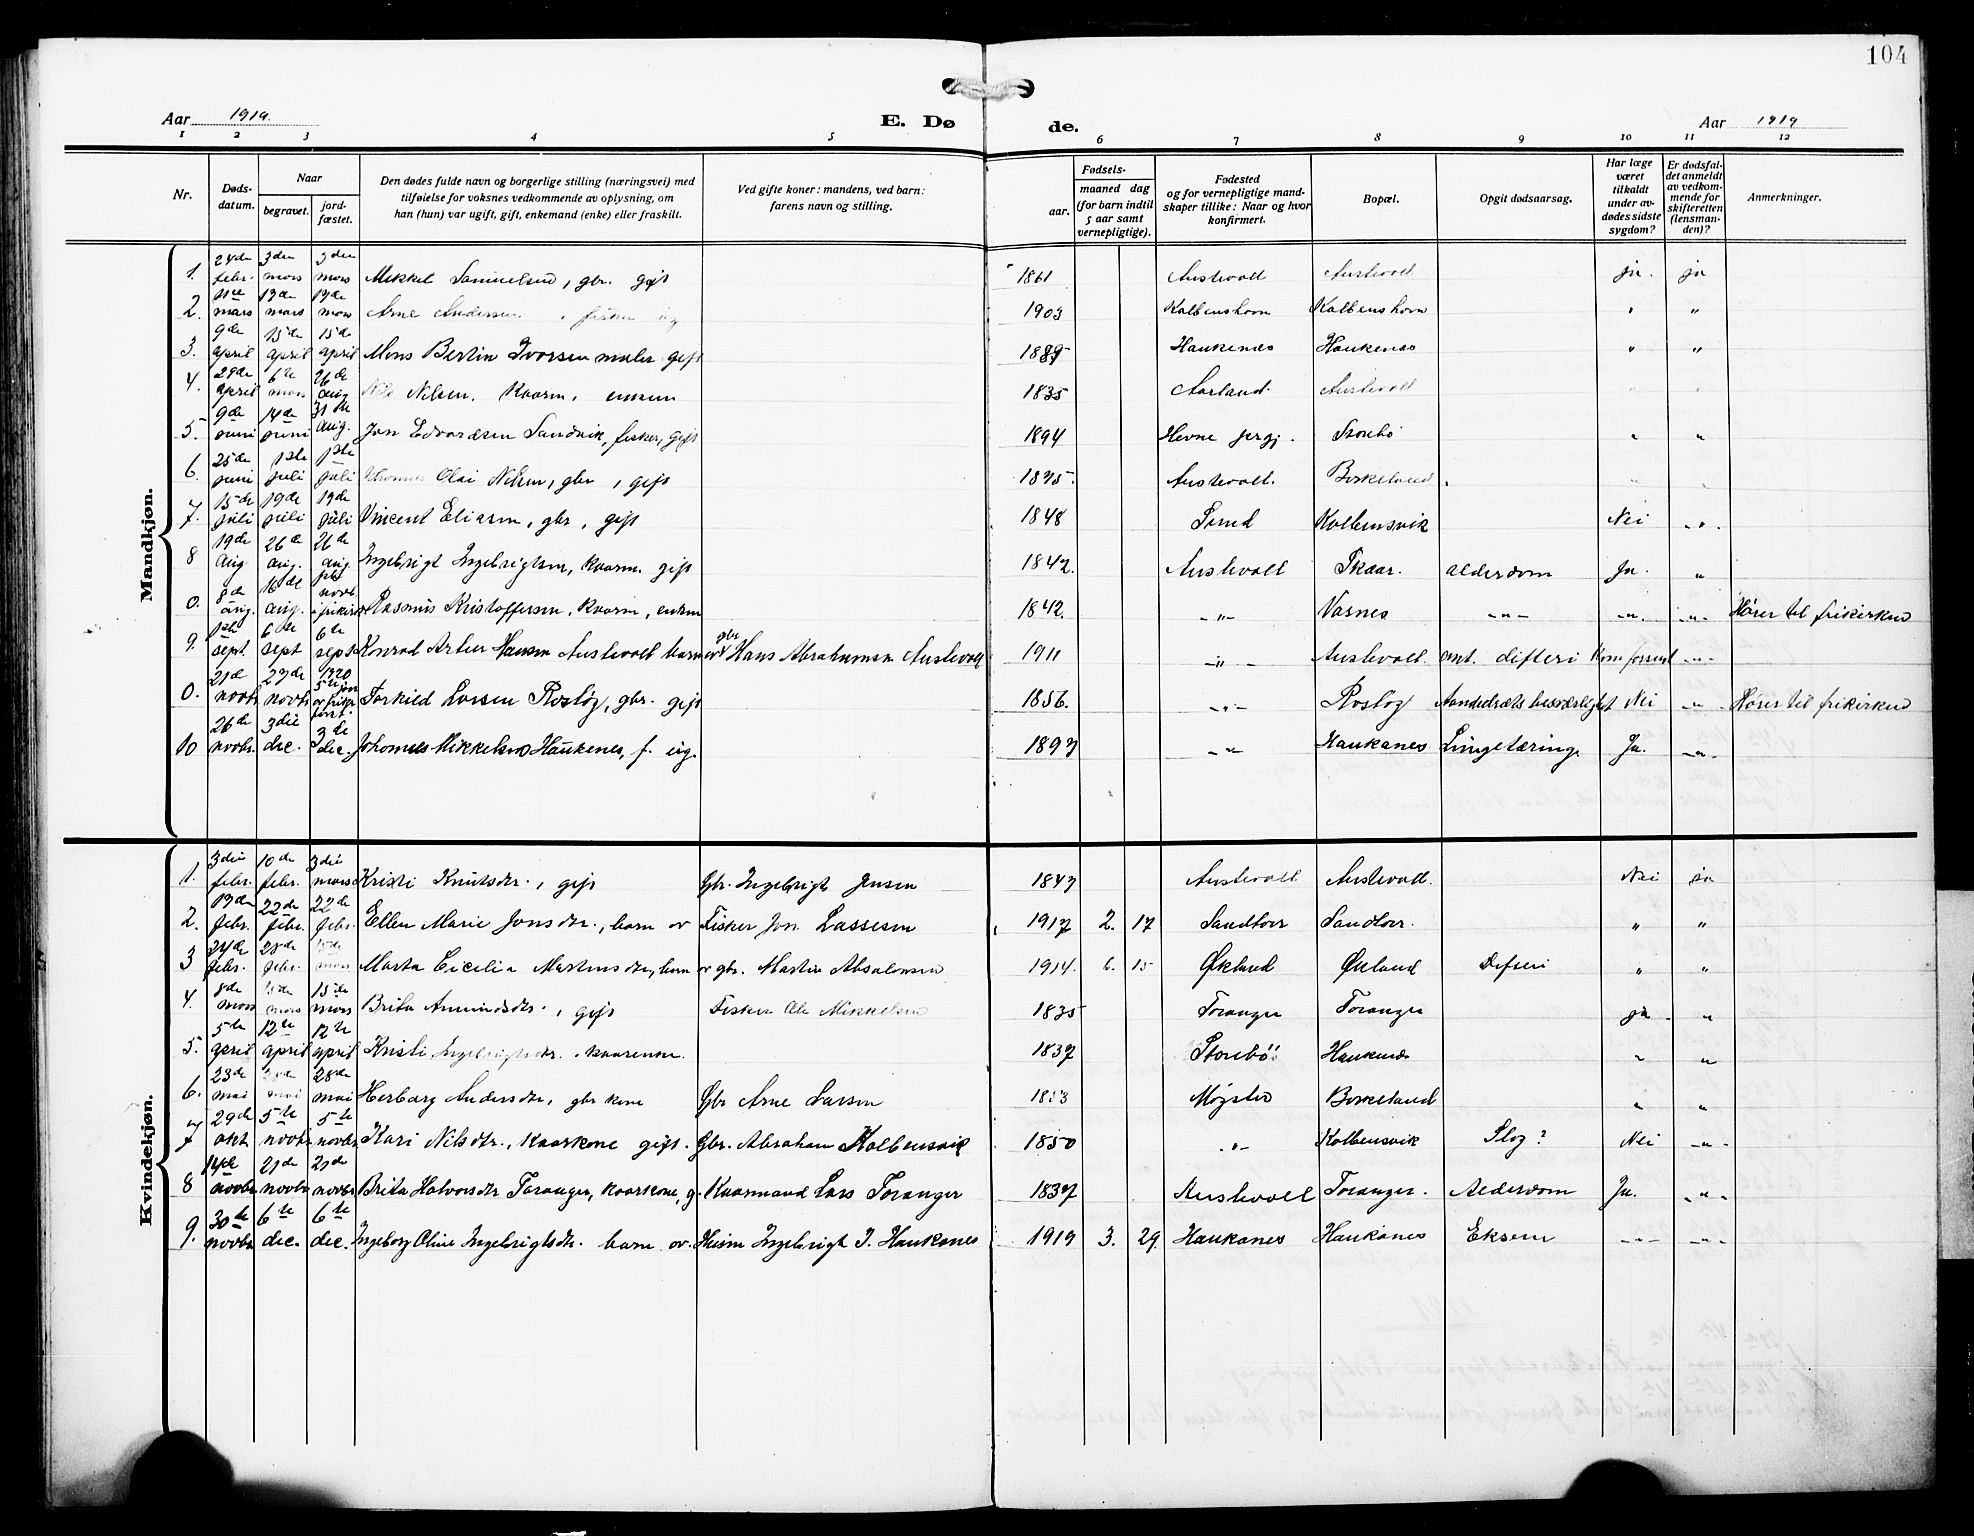 104
Aar 1919. E. Dø de. Aar 1919
1 2 3 4 5 6 7 8 9 10 11 12
Nr. Døds-datum. Naar begravet. jord-fæstet. Den dødes fulde navn og borgerlige stilling (næringsvei) med tilføielse for voksnes vedkommende av oplysning, om han (hun) var ugift, gift, enkemand (enke) eller fraskilt. Ved gifte koner: mandens, ved barn: farens navn og stilling. Fødsels- aar. maaned dag (for barn indtil 5 aar samt vernepligtige). Fødested og for vernepligtige mandskaper tillike: Naar og hvor konfirmert. Bopæl. Opgit dødsaarsag. Har læge været tilkaldt under avdødes sidste sygdom? Er dødsfaldet anmeldt av vedkommende for skifteretten (lensmanden)? Anmerkninger.
Mandkjøn.
1. 24de febr. 3die mars 3die mars Mikkel Samuelsen, gbr. gift 1861 Austevoll Austevoll ja. ja
2. 11te mars 19de mars 19de mars Arne Andersen, fisker ug 1903 Kalbenshovn Kalbenshovn " "
3. 9de april 15de april 15de april Mons Bertin Ivarsen maler gift 1889 Haukenæs Haukenæs " "
4. 29de april 6te mai 26de aug Nils Nilsen, Kaarm, enkem 1835 Aarland. Austevoll " "
5. 9de juni 14de juni 31te aug. Jon Edvardsen Sandvik, fisker, gift 1894 Hevne prgj. Storebø " "
6. 25de juni 1ste juli 1ste juli Olai Nilsen, gbr, gift 1875. Austevoll. Birkeland. " "
7. 15de juli 19de juli 19de juli Vincent Eliassen, gbr, gift 1848 Sund Kalbensvik Nei - " -
8 19de aug 26de aug. 26de aug Ingebrigt Ingebrigtsen, kaarm. gift 1842. Austevoll Skaar. alderdom Ja. "
0. 9de aug. 16de aug. 1ste novb. i frikirke Rasmus Kristoffersen, Kaarm, enkem 1842. - " - Vasnes - " - - " - - " - Hører til frikirken
9. 1ste sept. 6te sept 6te sept Konrad Artur Hansen Austevoll barn av gbr Hans Abrahamsen Austevoll 1911 - " - Austevoll ant. difteri Kom forsent - " -
0. 21de novbr 29de novbr 1920 5te jan av frikir forst. Torkild Larsen Rostøy, gbr. gift 1856. - " - Rostøy Aandedræts besværlighet Nei - " - Hører til frikirken
10 26de novbr. 3die dec. 3de dec. Johannes Mikkelsen Haukenes, f. ug. 1897 - " - Haukanes Lungetæring. Ja. - " -
Kvindekjøn.
1. 3die febr. 10de febr. 3die mars Kristi Knutsdtr., gift Gbr. Ingebrigt Jensen 1847 Austevoll Austevoll. Nei ja
2. 19de febr. 22de febr. 22de febr. Ellen Marie Jonsdtr., barn av Fisker Jon Lassesen 1917 2. 17 Sandtorv Sandtorv. " "
3 24de febr. 28de febr. mars Marta Cicilia Martinsdtr, barn av gbr. Martin Absalonsen 1914. 6. 15 Økland Økland Difteri " "
4. 8de mars 15de mars 15de mars Brita Amundsdtr., gift Fisker Ole Mikkelsen 1835 Toranger Toranger ja. "
5. 5te april 12te april 12te april Kristi Ingebrigtsdtr. kaarenke. 1837 Storebø Haukenæs " "
6. 23de mai 28de mai 28de mai Herborg Andersdtr, gbr kone Gbr Arne Larsen Møgster Birkeland " "
7 29de okt. 5te novbr 5te novbr. Kari Nilsdtr., Kaarkone gift. Gbr. Abraham Kalbensvik 1850 - " - Kalbensvik Slag? Nei - " -
8 14de novbr. 21de novbr. 21de novbr. Brita Halvorsdtr Toranger, kaarkone, g. Kaarmand Lars Toranger 1837 Austevoll Toranger. Alderdom Ja. - " -
9. 30te novbr. 6te dec. 6te dec. Ingeborg Oline Ingebrigtsdtr. barn av. Husm Ingebrigt J. Haukanes 1919 3. 29. Haukanes Haukanes Eksem - " - - " -